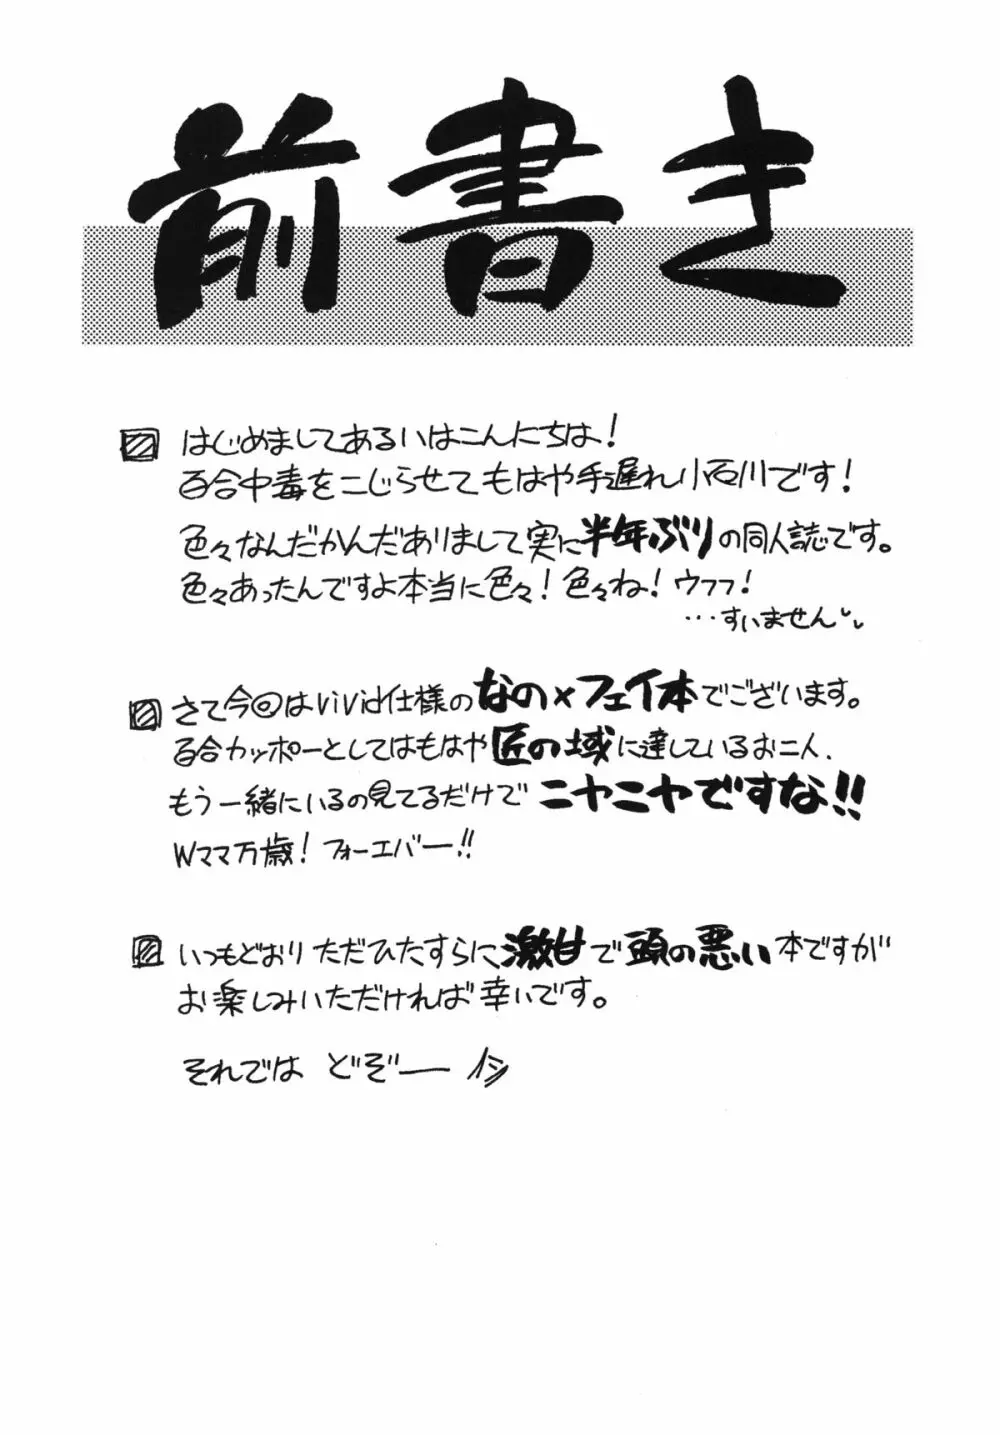 前書き
はじめましてあるいはこんにちは！
百合中毒をこじらせてもはや手遅れ小石川です！
色々なんだかんだありまして実に半年ぶりの同人誌です。
色々あったんですよ本当に色々！色々ね！ウフフ！
…すいません
さて今回はvivid仕様のなの×フェイ本でございます。
百合カッポーとしてはもはや匠の域に達しているお二人、
もう一緒にいるの見てるだけでニヤニヤですな！！
Wママ万歳！フォーエバー！！
いつもどおりただひたすらに激甘で頭の悪い本ですが
お楽しみいただければ幸いです。
それでは どぞー